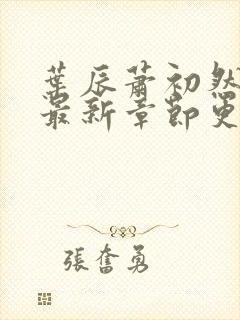 葉辰蕭初然
最新章節更
張奮勇